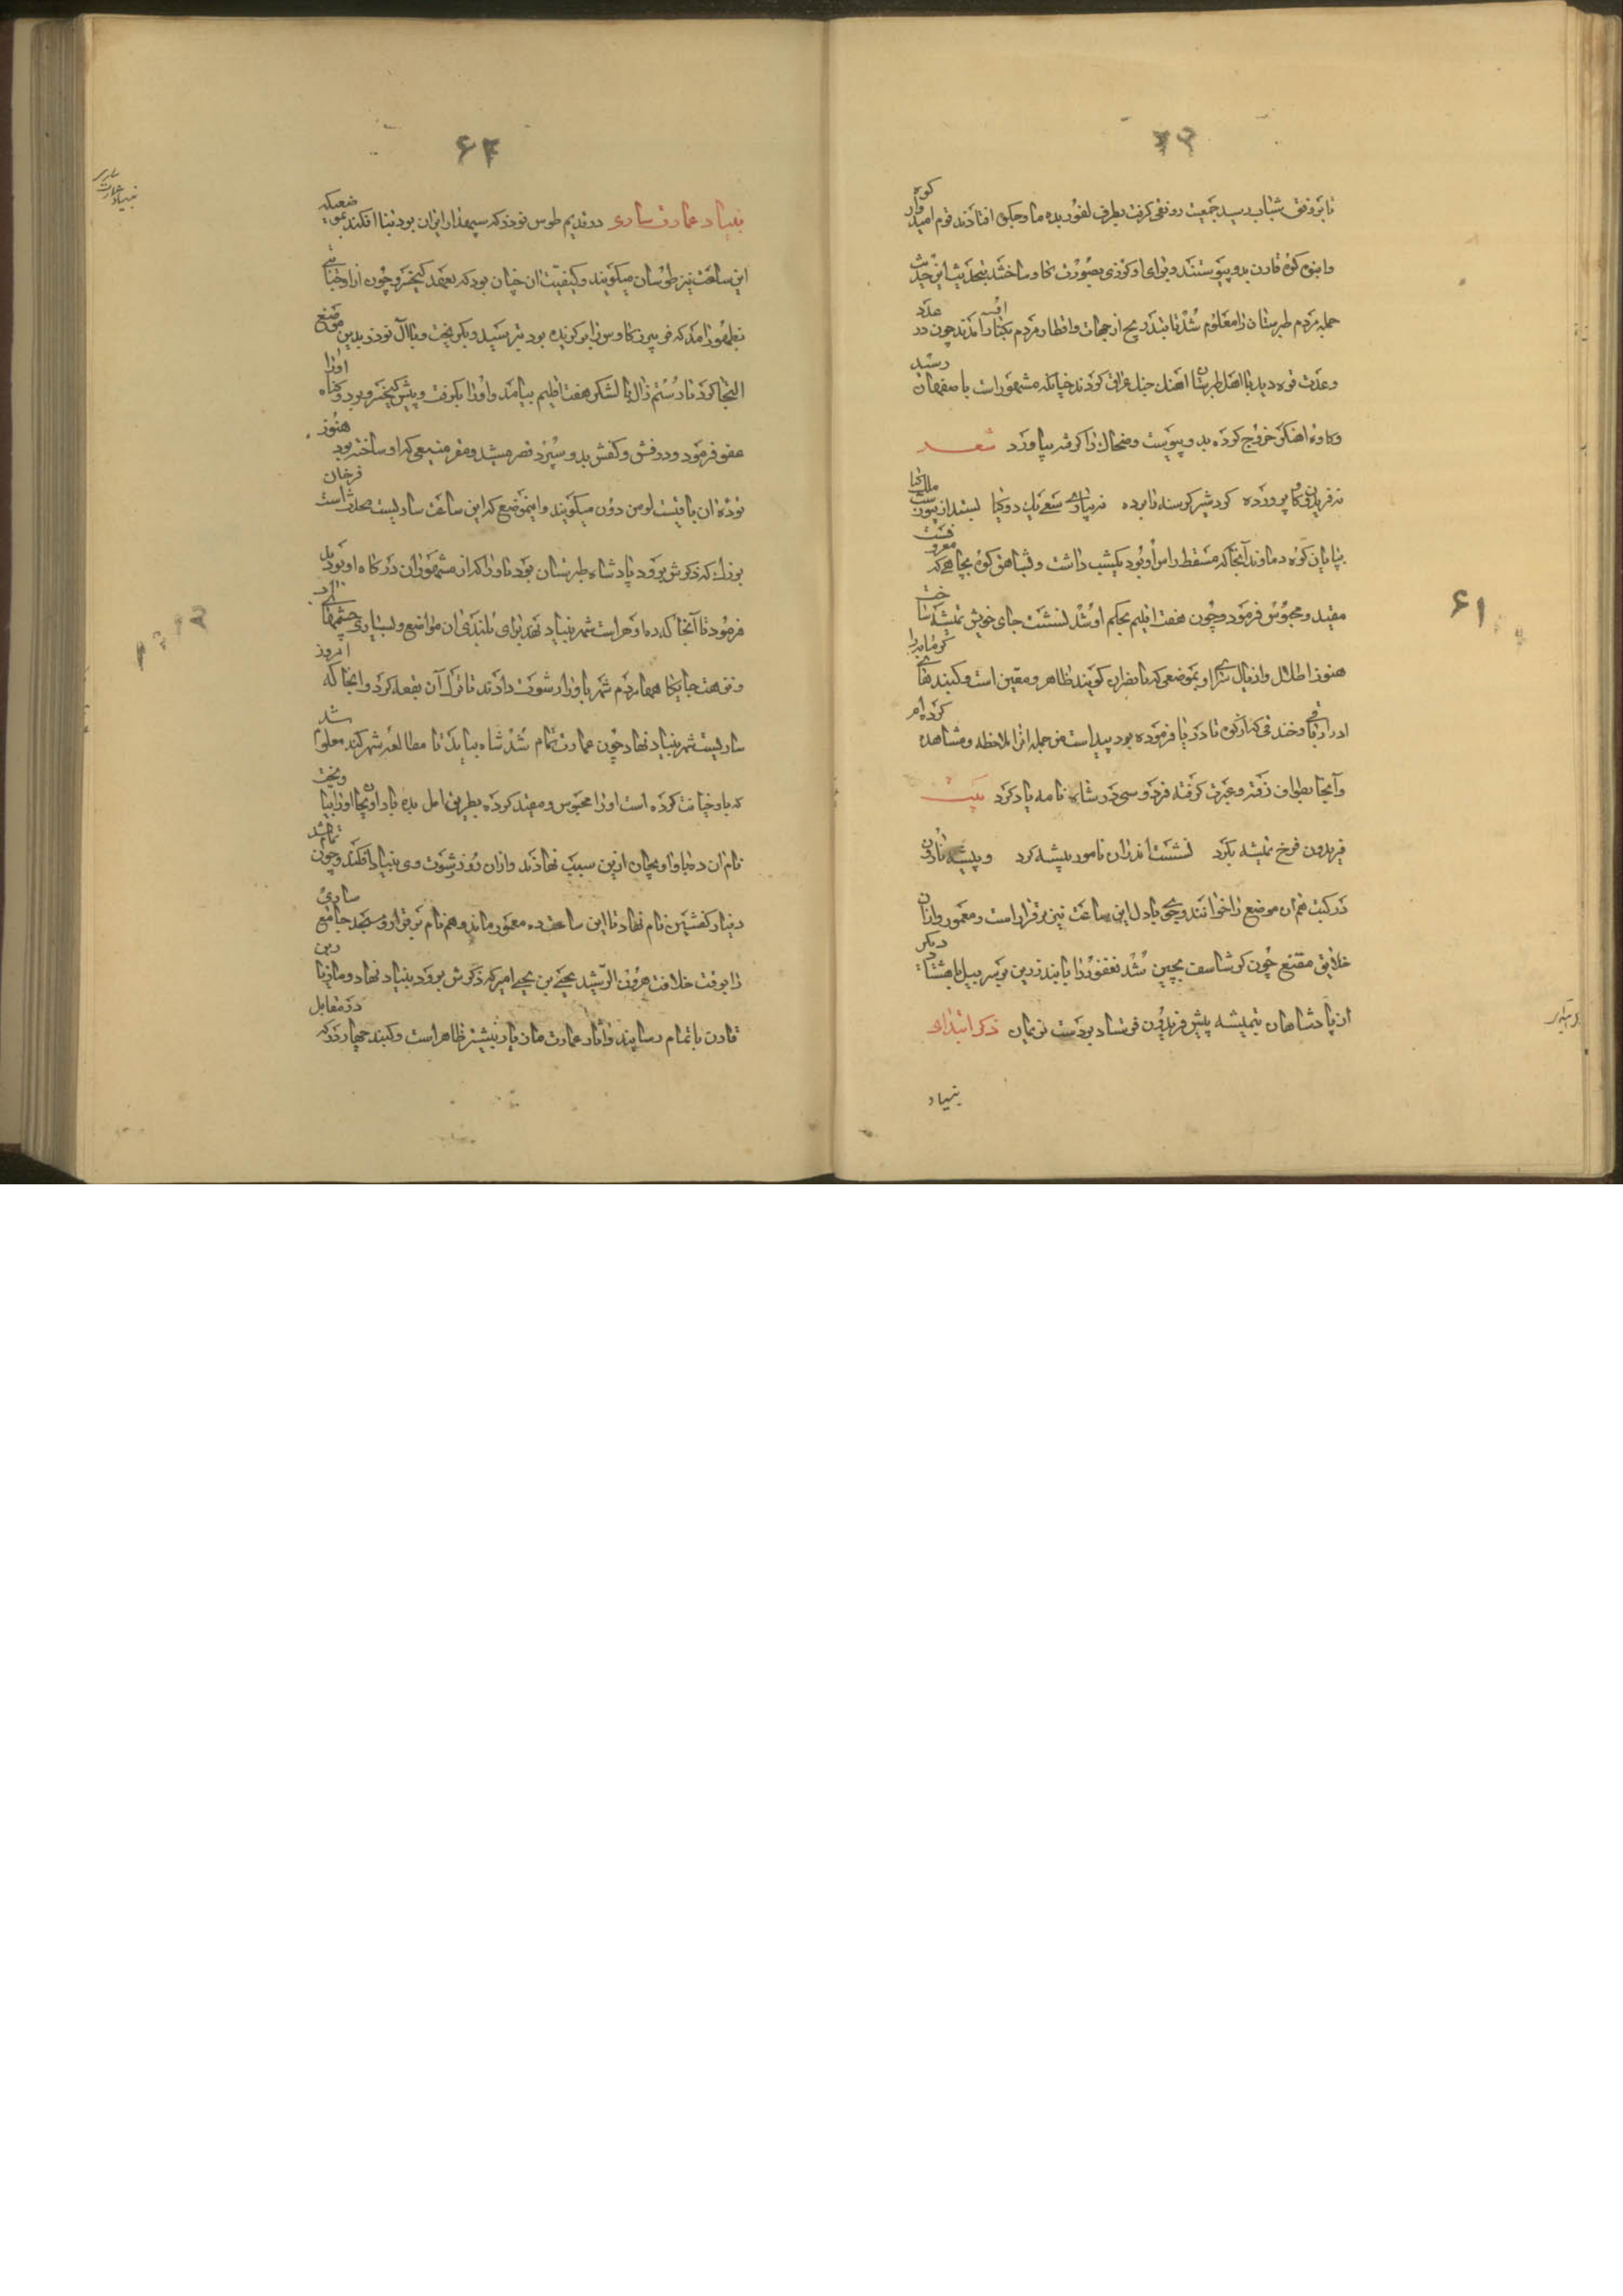 تا بر وفق شباب رسید جمعیت رونقی گرفت بطرف لفور بده ماوجکوه افتادند قوم امیدوار کوه
و انبوه کوه قارن بدو پیوستند و برای او گرزی بصورت گاو ساختند بتحدیث این حدیث
جمله مردم طبرستان را معلوم شد تا بتدریج از جهات و اقطار مردم بکنار او آمدند چون در عدد
و عدت قوه دید با اهل طبرستان آهنگ عراق کردند چنانکه مشهور است باصفهان رسید
و کاوه آهنگر خروج کرده بدو پیوست و ضحاک را گرفته بیاورد شعر
نه فریدون گاو پرورده کرد شیر گرسنه نابرده نه بیاری سعی یک دو گیا بستد از بیور ملک کیا
بپایان کوه دماوند آنجا که مسقط راس او بود یکشب داشت و بشاهق کوه بچاهی که معروفست
مقید و محبوس فرمود و چون هفت اقلیم بحکم او شد نشست جای خویش تمیشه ساخت
هنوز اطلال و دمال سرای او بموضعی که بانصران گویند ظاهر و معین است و گنبدهای گرمابه را
و خندقی که از کوه تا دریا فرموده بود پیداست من جمله آنرا ملاحظه و مشاهده کرده‌ام
و آنجا بطواف رفته و عبرت گرفته فردوسی در شاه نامه یاد کرد بیت
فریدون فرخ تمیشه بکرد نشست اندران نامور بیشه کرد
در کتب هم آن موضع را خوانند و تا این ساعت نیز برقرار است و معمور و ازان
خلایق مقنع چون گرشاسف بچین شد نغفور را با بند زرین بر سر پیل با هشتاد دیگر
از پادشاهان بتمیشه پیش فریدون فرستاد بردست نریمان ذکر ابتدای
بنیاد
۶۱
۶۴
بنیاد عمارت ساری در قدیم طوس نوذر که سپهدار ایران بود بنا افکند بموضعیکه
این ساعت نیز طوسان میگویند و کیفیت آن چنان بود که بعهد کیخسرو چون ازو خیانتی
بظهور آمد که فریبرز کاوس را برگزیده بود بترسید و بگریخت و با آل نوذر بدین موضع
التجا کرد تا رستم زال با لشکر هفت اقلیم بیامد و او را بگرفت و پیش کیخسرو برد و گناه او را
عفو فرمود و درفش و کفش بدو سپرد قصر مشید و مقر منیعی که او ساخته بود هنوز
توده آن باقیست لومن دون میگویند و اینموضع که این ساعت ساریست محدث است فرخان
بزرگ که ذکرش برود پادشاه طبرستان بود باو را که از مشهوران درگاه او بود
فرمود تا آنجا که ده اوهر است شهر بنیاد نهد برای بلندی آن مواضع و بسیاری چشمها
و نزهت جایگاه مردم شهر باو را رشوت دادند تا ترک آن بقعه کرد و اینجا که امروز
ساریست شهر بنیاد نهاد چون عمارت تمام شد شاه بیامد تا مطالعه شهر کند معلوم شد
که باو خیانت کرده است او را محبوس و مقید کرده بطریق آمل بده باو اویجان او را بیاویخت
نام آن ده باو آویجان ازین سبب نهادند و ازان زر رشوت دهی بنیاد افکند و چون تمام شد
دینار کفشین نام نهاد تا این ساعت ده معمور مانده و هم نام برقرار و مسجد جامع ساری
را بوقت خلافت هرون الرشید یحیی بن یحیی امیر که ذکرش برود بنیاد نهاد و مازیار بن
قارن باتمام رسانید و آثار عمارت مازیار بیشتر ظاهر است و گنبد چهاردر که در مقابل